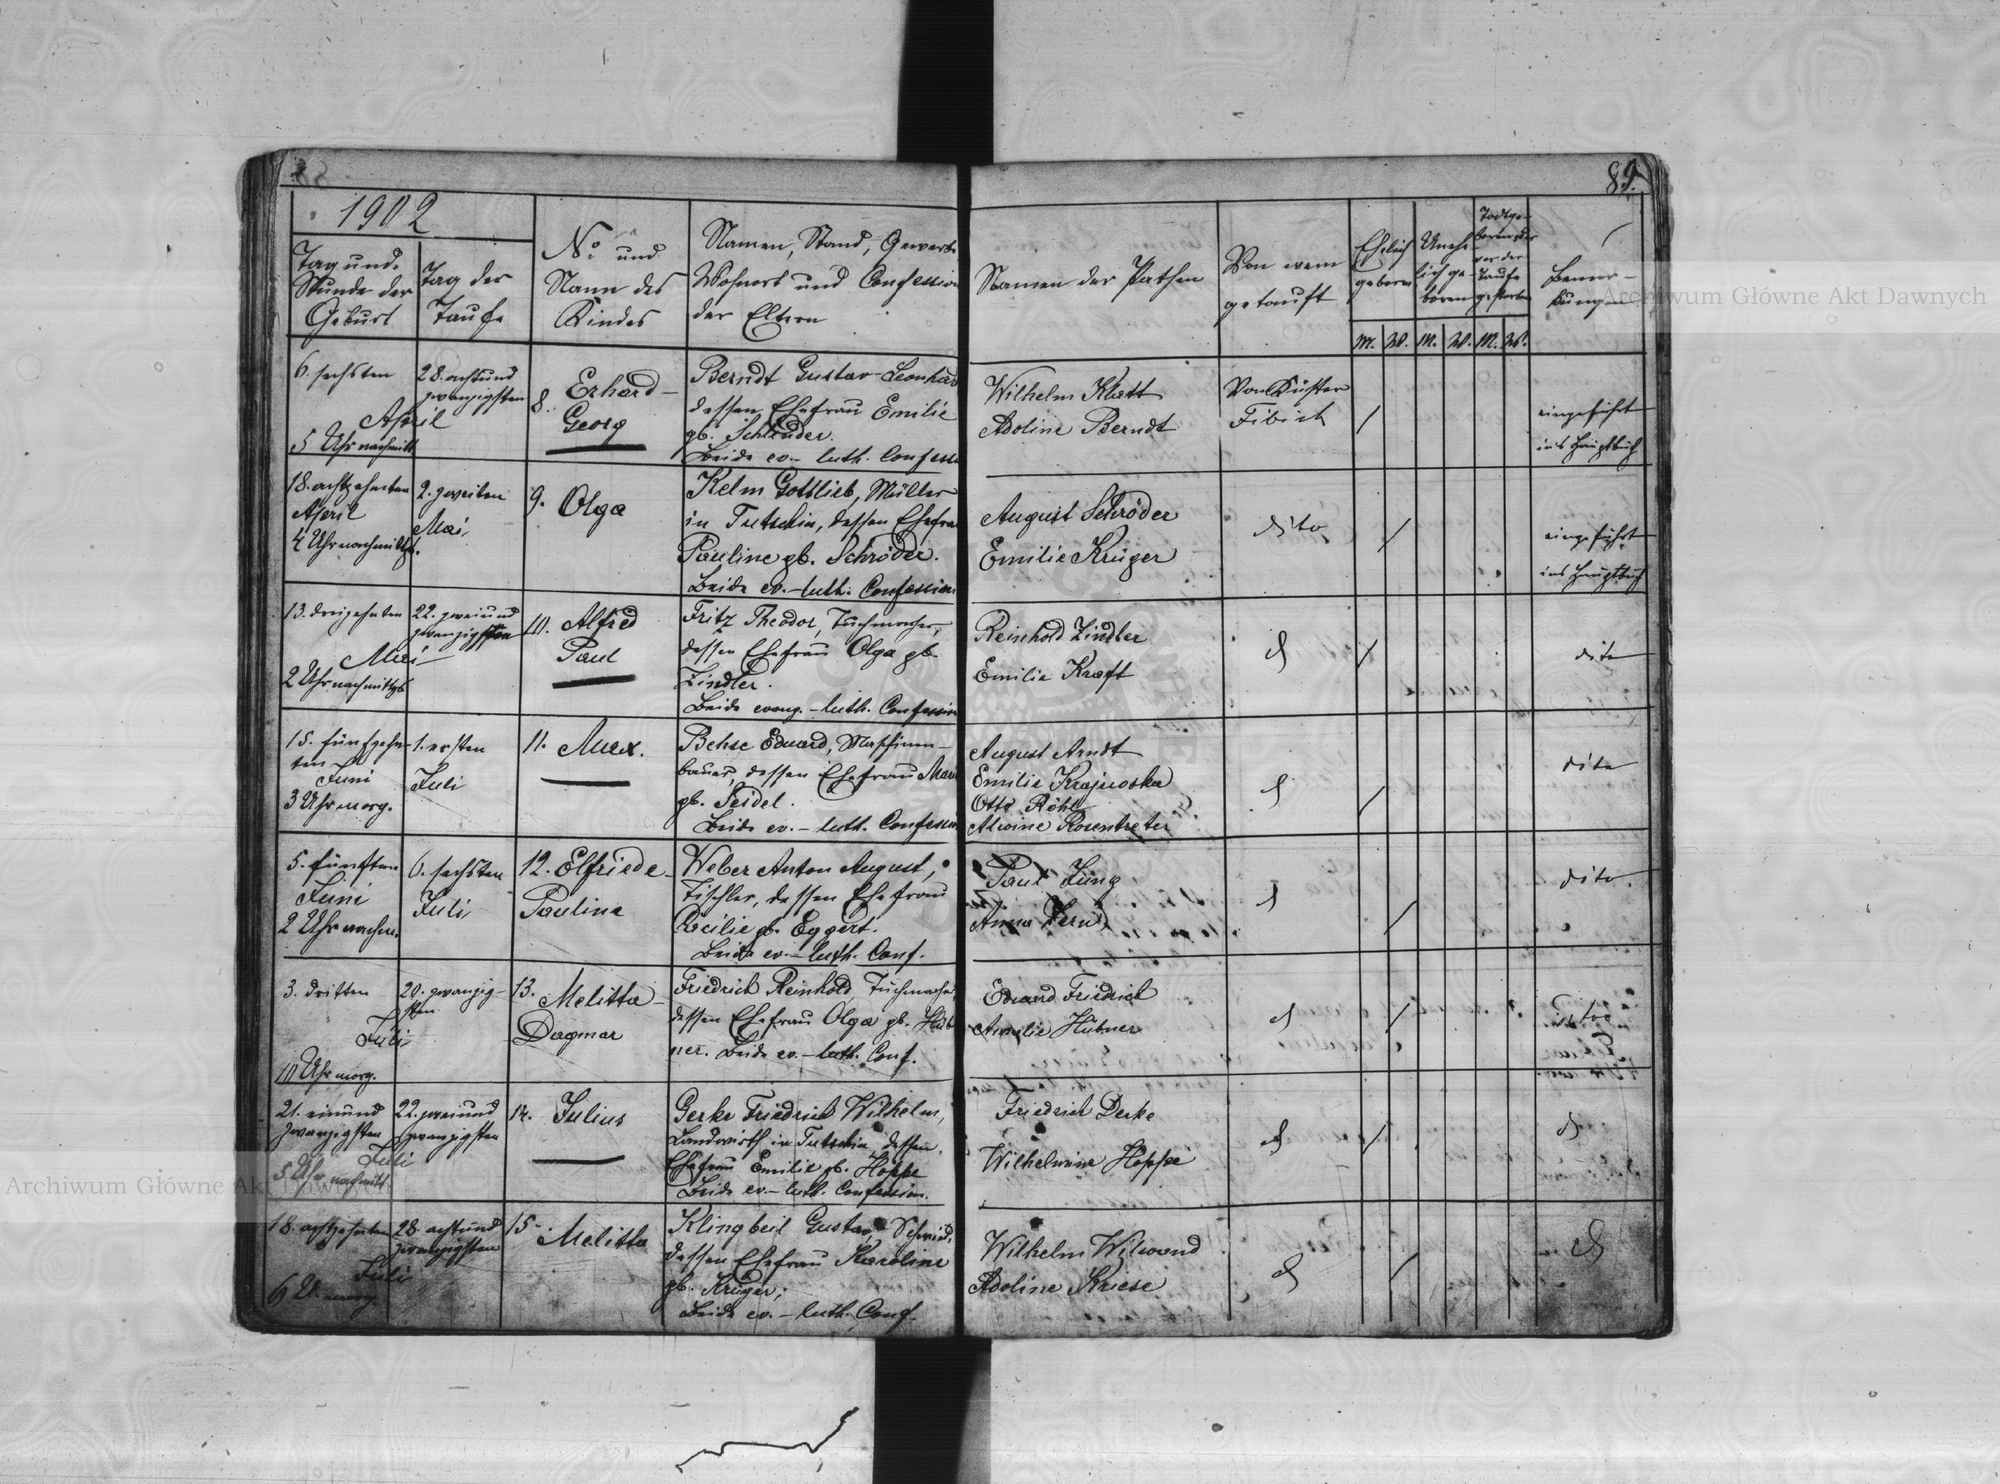 88
89.
1902
Tag und
Stunde der
Geburt
Tag der
Taufe
No. und
Name des
Kindes
Namen, Stand, Gewerbe
Wohnort und Confession
der Eltern
Namen der Pathen
Von wem
getauft
Ehelich
geboren
Unehe-
lich ge-
boren
Todtge-
boren oder
vor der
Taufe
gestorben
Bemer-
kung
M. W. M. W. M. W.
6. sechsten
April
5 Uhr nachmitt.
28. achtund
zwanzigsten
8. Erhard-
Georg
Berndt Gustav-Leonhard
dessen Ehefrau Emilie
gb. Schlender.
Beide ev.-luth. Confess
Wilhelm Klatt
Adoline Berndt
Von Küster
Fibich
eingeführt
ins Hauptbuch
18. achtzehnten
April
4 Uhr nachmittg.
2. zweiten
Mai
9. Olga
Kelm Gottlieb, Müller
in Tutschin, dessen Ehefrau
Pauline gb. Schröder.
Beide ev.-luth. Confession
August Schröder
Emilie Krüger
dito
eingeführt
ins Hauptbuch
13. dreizehnten
Mai
2 Uhr nachmittgs
22. zweiund
zwanzigsten
10. Alfred
Paul
Fritz Theodor, Tuchmacher,
dessen Ehefrau Olga gb.
Zindler.
Beide evang.-luth. Confession
Reinhold Zindler
Emilie Kraft
dito
15. fünfzehn-
ten
Juni
3 Uhr morg.
1. ersten
Juli
11. Max.
Behse Eduard, Maschinen-
bauer, dessen Ehefrau Marie
gb. Seidel.
Beide ev.-luth. Confession
August Arndt
Emilie Krajewska
Otto Röhl
Alwine Rosentreter
dito
5. fünften
Juni
2 Uhr nachm.
6. sechsten
Juli
12. Elfriede-
Pauline
Weber Anton August,
Tischler, dessen Ehefrau
Cäcilie gb. Eggert.
Beide ev.-luth. Conf.
Paul Jung
Anna
dito.
3. dritten
Juli
10 Uhr morg.
20. zwanzig-
sten
13. Melitta-
Dagmar
Friedrich Reinhold, Tuchmacher,
dessen Ehefrau Olga gb. Hüb
ner. Beide ev.-luth. Conf.
Eduard Friedrich
Amalie Hübner
dito
21. einund
zwanzigsten
Juli
5 Uhr nachmitt.
22. zweiund
zwanzigsten
14. Julius
Gerke Friedrich Wilhelm,
Landwirth in Tutschin, dessen
Ehefrau Emilie gb. Hoppe
Beide ev.-luth. Confession.
Friedrich Derke
Wilhelmine Hoppe
18. achtzehnten
Juli
6 U. morg.
28. achtund
zwanzigsten
15. Melitta
Klingbeil Gustav, Schmied,
dessen Ehefrau Karoline
gb. Krüger,
Beide ev.-luth. Conf.
Wilhelm Wilwand
Adoline Kriese
Archiwum Główne Akt Dawnych
Archiwum Główne Akt Dawnych